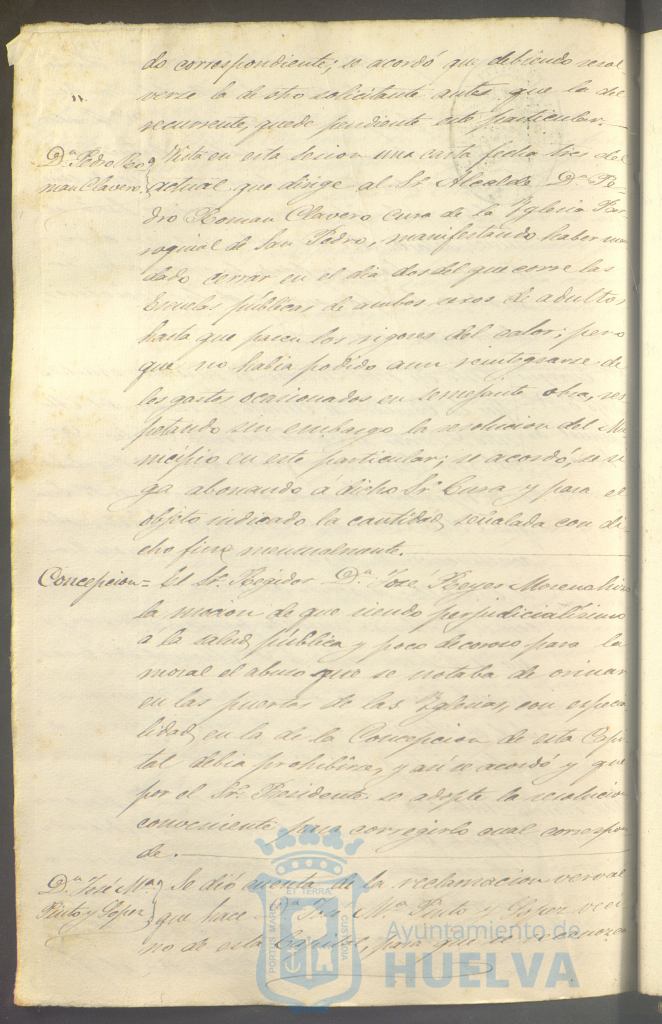 do correspondiente; se acordó que debiendo resol
verse la de otro solicitante antes que la del
recurrente, quede pendiente este particular.
Dn. Pedro Ro
man Clavero
Vista en esta sesion una carta fecha tres del
actual que dirige al Sr. Alcalde Dn. Pe-
dro Roman Clavero cura de la Yglesia Par
roquial de San Pedro, manifestando haber man
dado cerrar en el dia dos del que corre las
Escuelas públicas de ambos sexos de adultos
hasta que pasen los rigores del calor; pero
que no habia podido aun reintegrarse de
los gastos ocasionados en semejante obra, res
petando sin embargo la resolucion del Mu
nicipio en este particular; se acordó, se si
ga abonando á dicho Sr. Cura y para el
objeto indicado la cantidad señalada con di
cho fin mensualmente.
Concepcion =
El Sr. Regidor Dn. José Reyes Moreno hizo
la mocion de que siendo perjudicialísimo
a la salud pública y poco decoroso para la
moral el abuso que se notaba de orinar
en las puertas de las Yglesias, con especia
lidad en la de la Concepcion de esta Capi
tal debia prohibirse, y así se acordó y que
por el Sr. Presidente se adopte la resolucion
conveniente para corregirlo cual correspon
de.
Dn. José Ma.
Pinto y Lopez
Se dió cuenta de la reclamacion verval
que hace Dn. José Ma. Pinto y Lopez veci
no de esta Capital, para que se reconozca
PORTUS MARIS ET TERRAE CUSTODIA
Ayuntamiento de
HUELVA